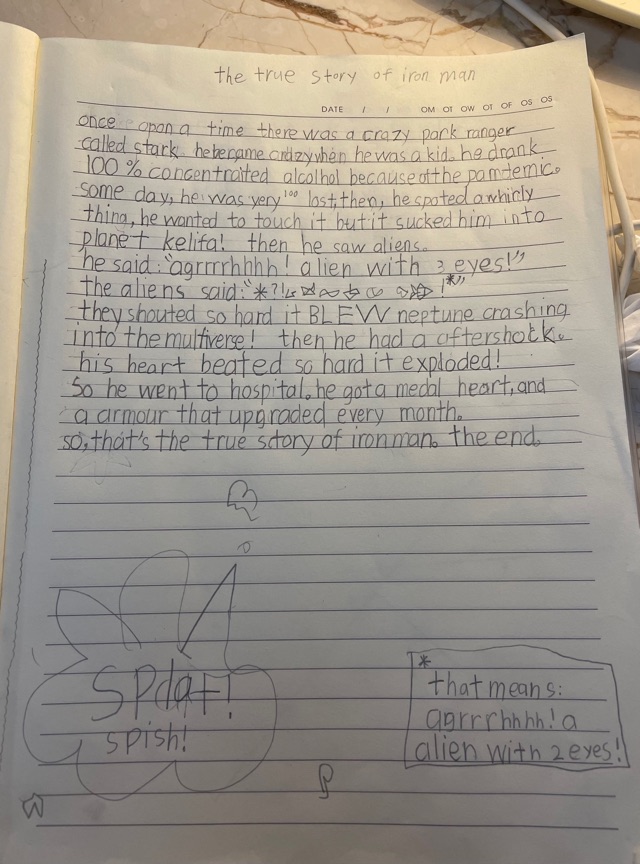 the true story of iron man
DATE / / OM OT OW OT OF OS OS
once opon a time there was a crazy park ranger
called stark. he became crazy when he was a kid. he drank
100 % concentraited alcolhol because of the pamdemic.
some day, he was very¹⁰⁰ lost, then, he spoted a whirly
thing, he wanted to touch it but it sucked him into
planet kelifa! then he saw aliens.
he said: "agrrrrhhhh! alien with 3 eyes!"
the aliens said: "*?! !*"
they shouted so hard it BLEW neptune crashing
into the multiverse! then he had a aftershock.
his heart beated so hard it exploded!
so he went to hospital. he got a medal heart, and
a armour that upgraded every month.
so, that's the true story of iron man. the end.
SPdat!
spish!
*
that means:
agrrrhhhh! a
alien with 2 eyes!